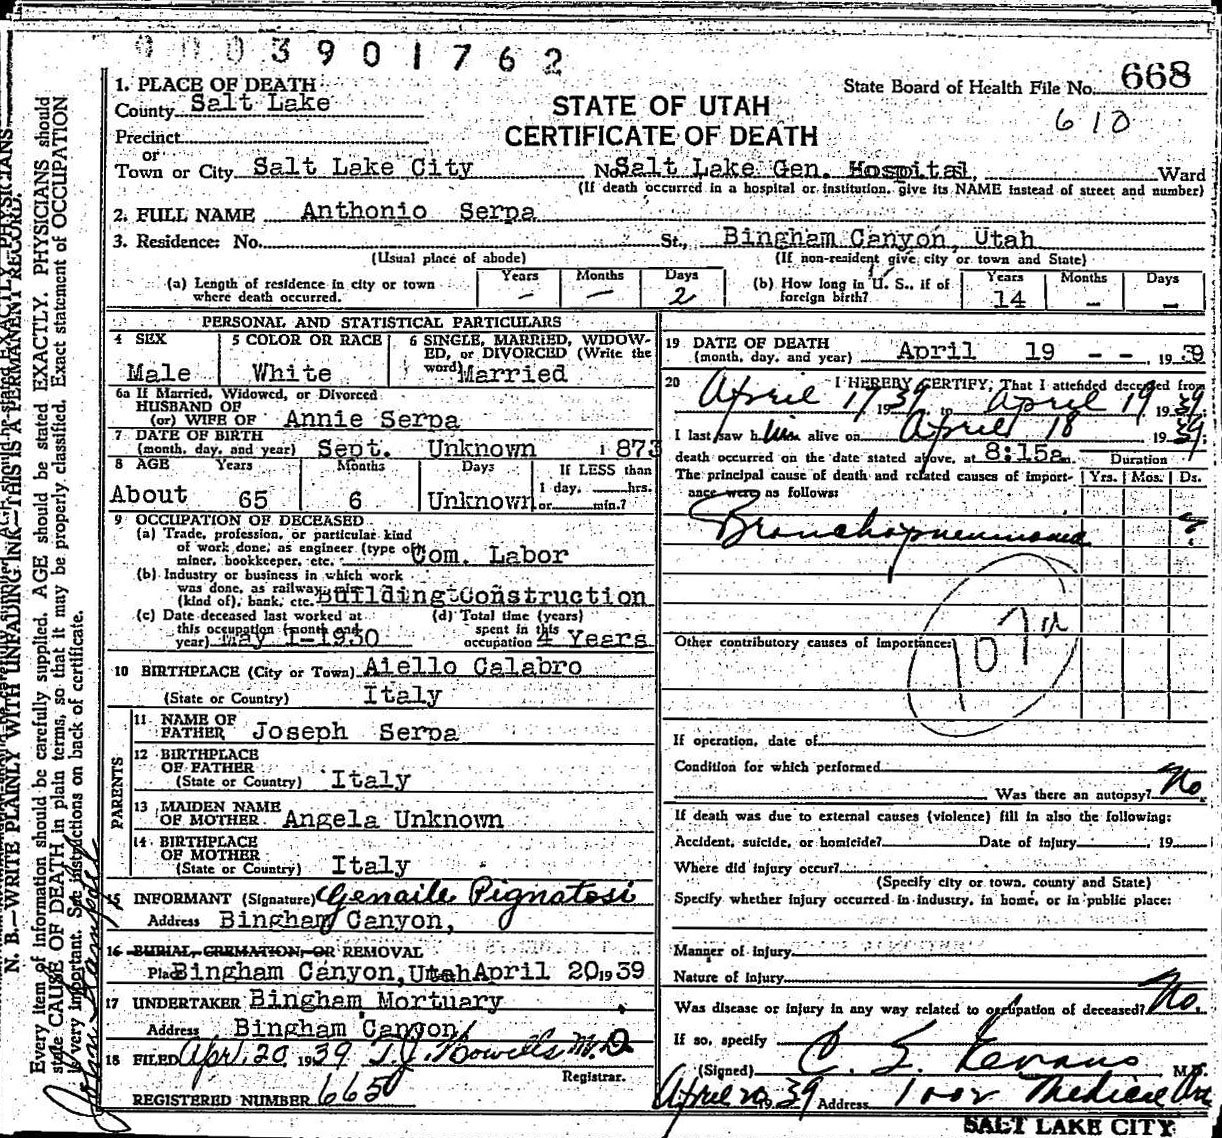 0003901762
State Board of Health File No. 668
610
STATE OF UTAH
CERTIFICATE OF DEATH
1. PLACE OF DEATH
County Salt Lake
Precinct
or
Town or City Salt Lake City No. Salt Lake Gen. Hospital, Ward
(If death occurred in a hospital or institution, give its NAME instead of street and number)
2. FULL NAME Anthonio Serpa
3. Residence: No. St., Bingham Canyon, Utah
(Usual place of abode) (If non-resident give city or town and State)
(a) Length of residence in city or town where death occurred. Years — Months — Days 2
(b) How long in U. S., if of foreign birth? Years 14 Months — Days —
PERSONAL AND STATISTICAL PARTICULARS
4 SEX Male
5 COLOR OR RACE White
6 SINGLE, MARRIED, WIDOWED, or DIVORCED (Write the word) Married
6a If Married, Widowed, or Divorced
HUSBAND OF
(or) WIFE OF Annie Serpa
7 DATE OF BIRTH
(month, day, and year) Sept. Unknown 1873
8 AGE Years Months Days If LESS than
About 65 6 Unknown 1 day, hrs.
or min.?
9 OCCUPATION OF DECEASED
(a) Trade, profession, or particular kind
of work done, as engineer (type of
miner, bookkeeper, etc. Com. Labor
(b) Industry or business in which work
was done, as railway, mine
(kind of), bank, etc. Building Construction
(c) Date deceased last worked at
this occupation (month and
year) May 1-1930
(d) Total time (years)
spent in this
occupation 4 Years
10 BIRTHPLACE (City or Town) Aiello Calabro
(State or Country) Italy
PARENTS
11 NAME OF
FATHER Joseph Serpa
12 BIRTHPLACE
OF FATHER
(State or Country) Italy
13 MAIDEN NAME
OF MOTHER Angela Unknown
14 BIRTHPLACE
OF MOTHER
(State or Country) Italy
15 INFORMANT (Signature) Genaile Pignatosi
Address Bingham Canyon,
16 BURIAL, CREMATION, OR REMOVAL
Place Bingham Canyon, Utah April 20 1939
17 UNDERTAKER Bingham Mortuary
Address Bingham Canyon
18 FILED Apr. 20, 1939 M.D.
Registrar.
REGISTERED NUMBER 6650
19 DATE OF DEATH
(month, day, and year) April 19 - - 1939
20 I HEREBY CERTIFY, That I attended deceased from
April 17 1939, to April 19 1939
I last saw him alive on April 18 1939
death occurred on the date stated above, at 8:15a m.
Duration
The principal cause of death and related causes of importance were as follows: Yrs. Mos. Ds.
Bronchopneumonia
107a
Other contributory causes of importance:
If operation, date of
Condition for which performed
Was there an autopsy? No
If death was due to external causes (violence) fill in also the following:
Accident, suicide, or homicide? Date of injury 19
Where did injury occur?
(Specify city or town, county and State)
Specify whether injury occurred in industry, in home, or in public place:
Manner of injury
Nature of injury
Was disease or injury in any way related to occupation of deceased? No.
If so, specify
(Signed) C. L. Evans M.D.
April 20 1939 Address 1002 Medical Arts
SALT LAKE CITY
N. B.—WRITE PLAINLY WITH UNFADING INK—THIS IS A PERMANENT RECORD.
Every item of information should be carefully supplied. AGE should be stated EXACTLY. PHYSICIANS should
state CAUSE OF DEATH in plain terms, so that it may be properly classified. Exact statement of OCCUPATION
is very important. See instructions on back of certificate.